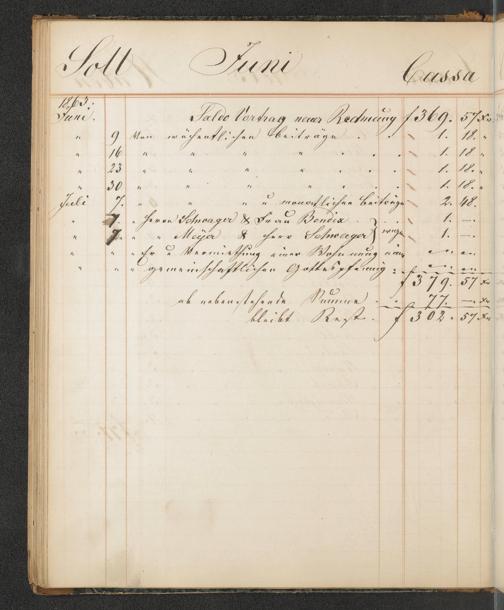 Soll Juni Cassa
1863.
Juni. Saldo Vortrag neuer Rechnung f 369. 57 Xr
" 9 Von wöchentlichen Beiträge " 1. 18. "
" 16 " " " " 1. 18 "
" 23 " " " " 1. 18. "
" 30 " " " " 1. 18. "
Juli 7. " " " u monatlichen Beiträge " 2. 48.
" 7. " Herrn Schwager & Frau Bendix " 1. —
" 7. " " Meyer & Herr Schwager wege " 1. —
" " " für u Vermiethung einer Wohnung — —
" " " gemeinschaftlichen Gottespfennig — —
f 379. 57 Xr
ab nebenstehende Summe " 77. — Xr
bleibt Rest f 302. 57 Xr